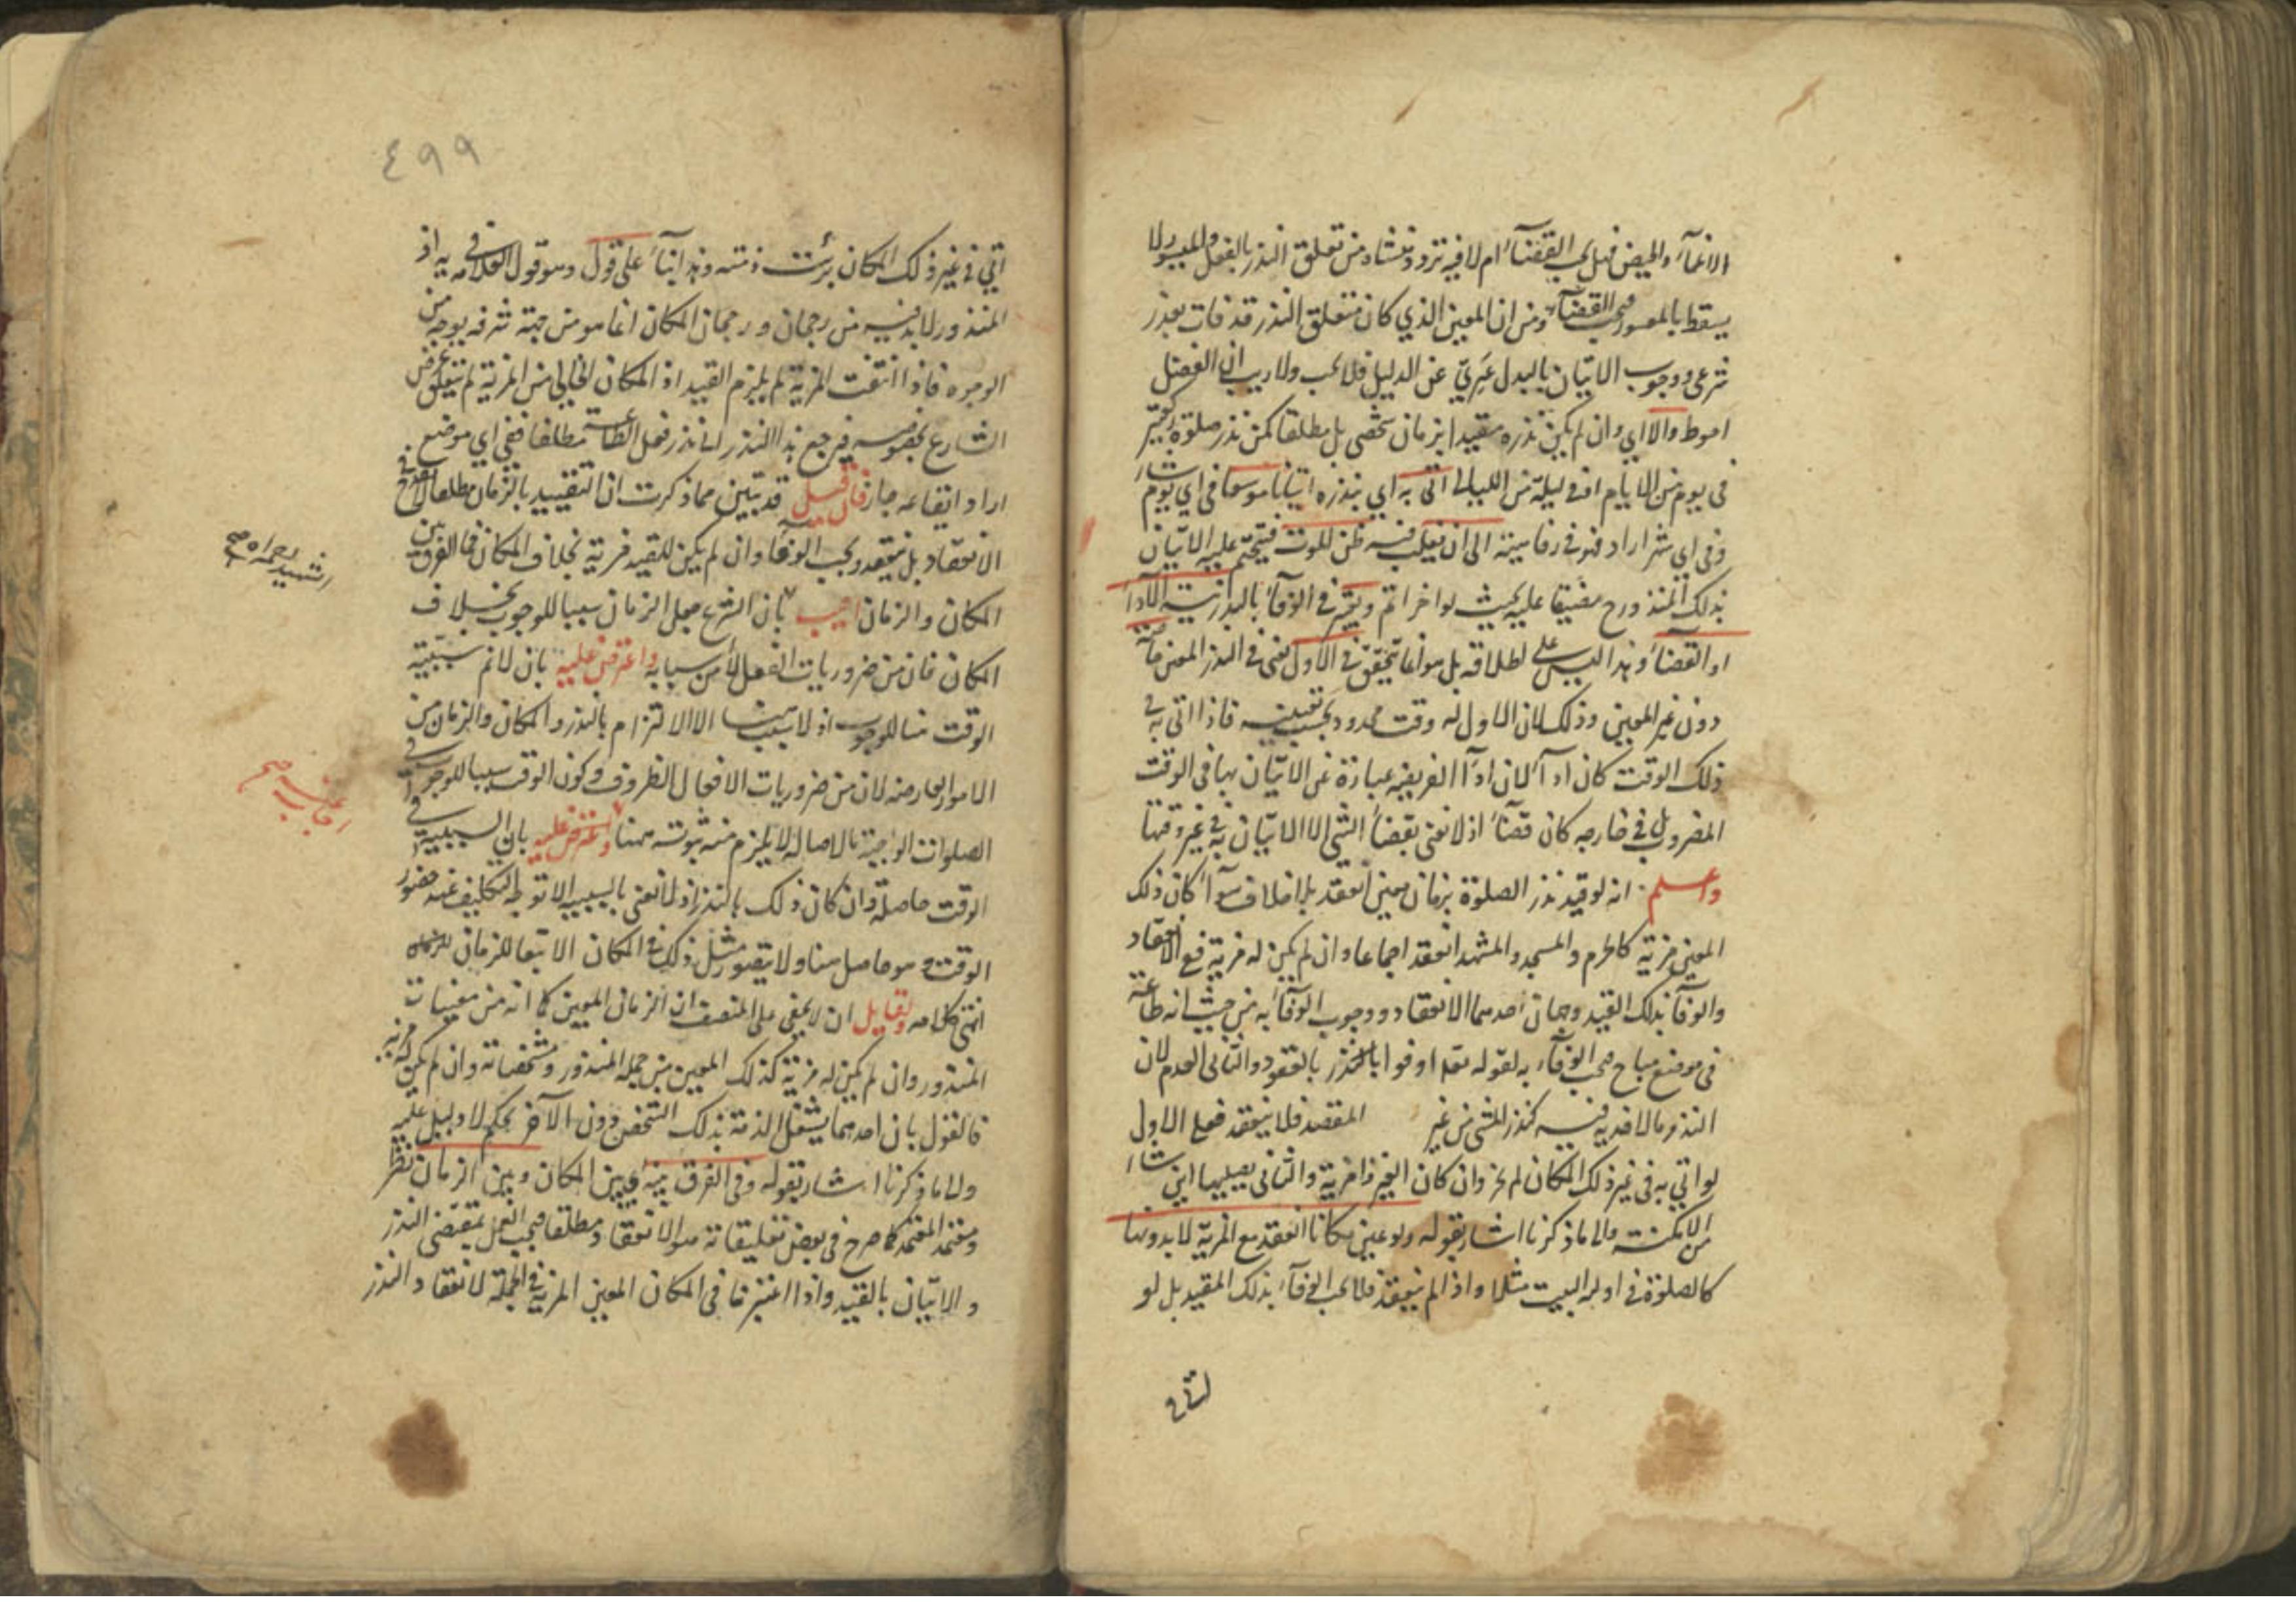 الاغمآء والحيض فهل يجب القضآء ام لا فيه تردد ينشاء من تعلق النذر بالفعل والميسور لا
يسقط بالمعسور فيجب القضآء ومن ان المعين الذي كان متعلق النذر قد فات بعذر
شرعى ووجوب الاتيان بالبدل عَرِيّ عن الدليل فلا يجب ولا ريب ان الفضل
احوط والا اي وان لم يكن نذره مقيدا بزمان شخصى بل مطلقا كمن نذر صلوة
فى يوم من الايام او فى ليلة من الليالى اتى به اي بنذره اتيانا موسعا فى اي يوم شاء
وفى اي شهر اراد فهو فى رفاهيته الى ان يغلب فيه ظن الموت فيتحتم عليه الاتيان
بذلك المنذور ح مضيقا عليه بحيث لو اخر اثم ويعتبر فى الوفآء بالنذر نيته الادآء
او القضآء وهذا ليس على اطلاقه بل هو انما يتحقق فى الاول يعنى فى النذر المعين خاصة
دون غير المعين وذلك لان الاول له وقت محدود بحسب تعيينه فاذا اتى به فى
ذلك الوقت كان ادآء لان ادآء الفريضه عبارة عن الاتيان بها فى الوقت
المضروب بل فى خارجه كان قضآء اذ لا نعنى بقضآء الشى الا الاتيان به فى غير وقتها
واعلم انه لو قيد نذر الصلوة بزمان معين انعقد بلا خلاف سوآء كان ذلك
المعين مزية كالحرم والمسجد والمشهد انعقد اجماعا وان لم يكن له مزية ففى الانعقاد
والوفآء بذلك القيد وجهان احدهما الانعقاد ووجوب الوفآء به من حيث انه طاعة
فى موضع مباح فيجب الوفآء به لقوله تعه اوفوا بالعقود والثانى العدم لان
النذر مالا قربه فيه كنذر المشى من غير المقصد فلا ينعقد فعلى الاول
لو اتى به فى غير ذلك المكان لم يجز وان كان الغير ذا مزية والثانى يصليها اين شاء
من الامكنة والى ما ذكرنا اشار بقوله ولو عين مكانا انعقد مع المزية لا بدونها
كالصلوة فى اوله البيت مثلا واذا لم ينعقد فلا يجب الوفآء بذلك المقيد بل لو
٤٩٩
اتي فى غير ذلك المكان برئت ذمته وهذا بنآء على قول وهو قول العلامه فى يه اذ
المنذور لابد فيه من رجحان ورجحان المكان انما هو من جهة شرفه بوجه من
الوجوه فاذا انتفت المزية لم يلزم القيد اذ المكان الخالى من المزية لم يتعلق غرض
الشارع بخصوصه فيرجع هذا النذر الى نذر فعل الطاعة مطلقا ففى اي موضع
اراد ايقاعه جاز فان قيل قد تبين مما ذكرت ان التقييد بالزمان مطلقا لا يقدح فى
الانعقاد بل ينعقد ويجب الوفآء وان لم يكن للقيد مزية بخلاف المكان فما الفرق بين
المكان والزمان اجيب بان الشرع جعل الزمان سببا للوجوب بخلاف
المكان فان من ضروريات الفعل لا من سبابه واعترض عليه بان لا نم سببية
الوقت هنا للوجوب اذ لا سبب هنا الا الالتزام بالنذر والمكان والزمان من
الامور العارضه لان من ضروريات الافعال الظروف وكون الوقت سببا للوجوب فى
الصلوات الواجبة بالاصالة لا يلزم منه ثبوته ههنا واعترض عليه بان السببية فى
الوقت حاصلة وان كان ذلك بالنذر اذ لا نعنى بالسببية الا توجه التكليف عند حضور
الوقت وهو حاصل هنا ولا يتصور مثل ذلك فى المكان الا تبعا للزمان
انتهى كلامه ولقايل ان لا يخفى على المنصف ان الزمان المعين كما انه من معينات
المنذور وان لم يكن له مزية كذلك المعين من جملة المنذور ومشخصاته وان لم يكن له مزيه
فالقول بان احدهما يشغل الذمة بذلك الشخص دون الآخر تحكم لا دليل عليه
والى ما ذكرنا اشار بقوله وفى الفرق بينه اي بين المكان وبين الزمان نظر
ومعتمد المعتمد كما صرح فى بعض تعليقاته هو الانعقاد مطلقا فيجب العمل بمقتضى النذر
والاتيان بالقيد واذا اعتبرنا فى المكان المعين المزية فى الجملة لانعقاد النذر
الشهيد رحمه اه صح